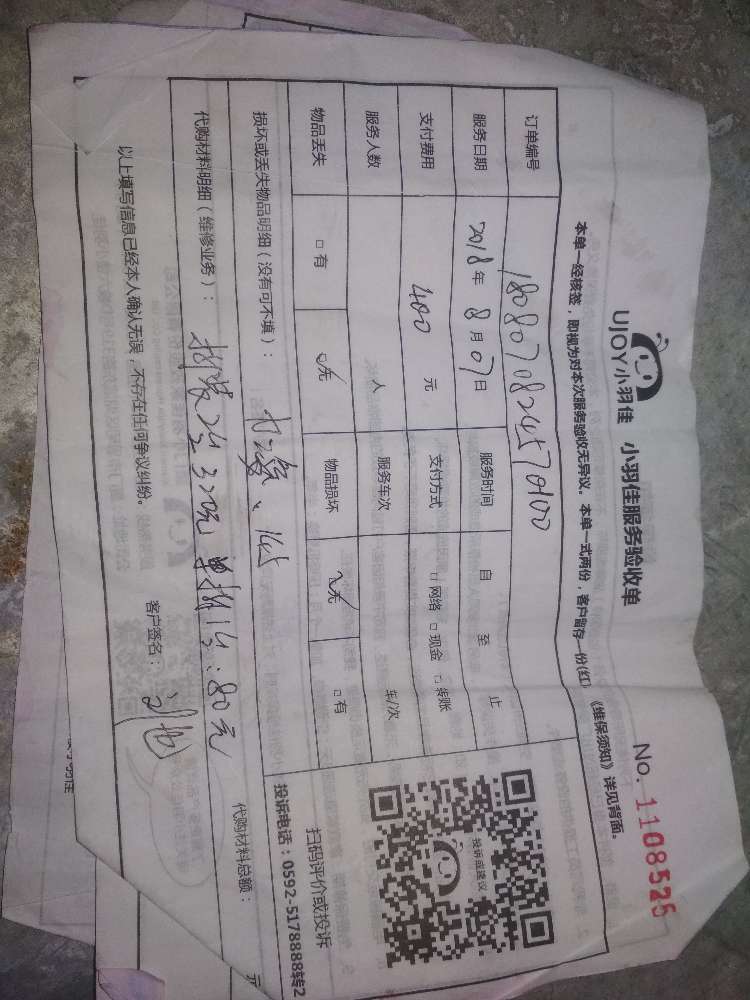 UJOY小羽佳 小羽佳服务验收单
No. 1108526
本单一经核签，即视为对本次服务验收无异议。本单一式两份，客户留存一份(红) 《维保须知》详见背面。
订单编号 1808070824570100
服务日期 2018年 8月07日 服务时间 自 至 止
支付费用 400 元 支付方式 □网络 □现金 □转账
服务人数 人 服务车次 车/次
物品丢失 □有 无 物品损坏 无 □有
投诉或建议
扫码评价或投诉
投诉电话：0592-5178888转2
损坏或丢失物品明细（没有可不填）：
代购材料明细（维修业务）： 拆装2台320元 单拆1台:80元
代购材料总额： 元
以上填写信息已经本人确认无误，不存在任何争议纠纷。
客户签名：